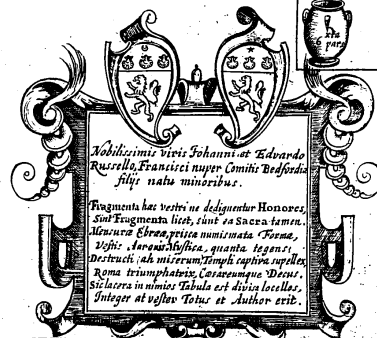 xta
6 pars
Nobilissimis viris Johanni et Edvardo
Russello, Francisci nuper Comitis Bedfordiæ
filijs natu minoribus.
Fragmenta hæc vestri ne dedignentur Honores,
Sint Fragmenta licet, sunt ea Sacra tamen.
Mensuræ Ebreæ, prisca numismata Formæ,
Vestis Aaronis Mystica, quanta tegens;
Destructi (ah miserum) Templi captiva supellex,
Roma triumphatrix, Cæsareumque Decus.
Sic lacera in nimios Tabula est divisa locellos,
Integer at vester Totus et Author erit.